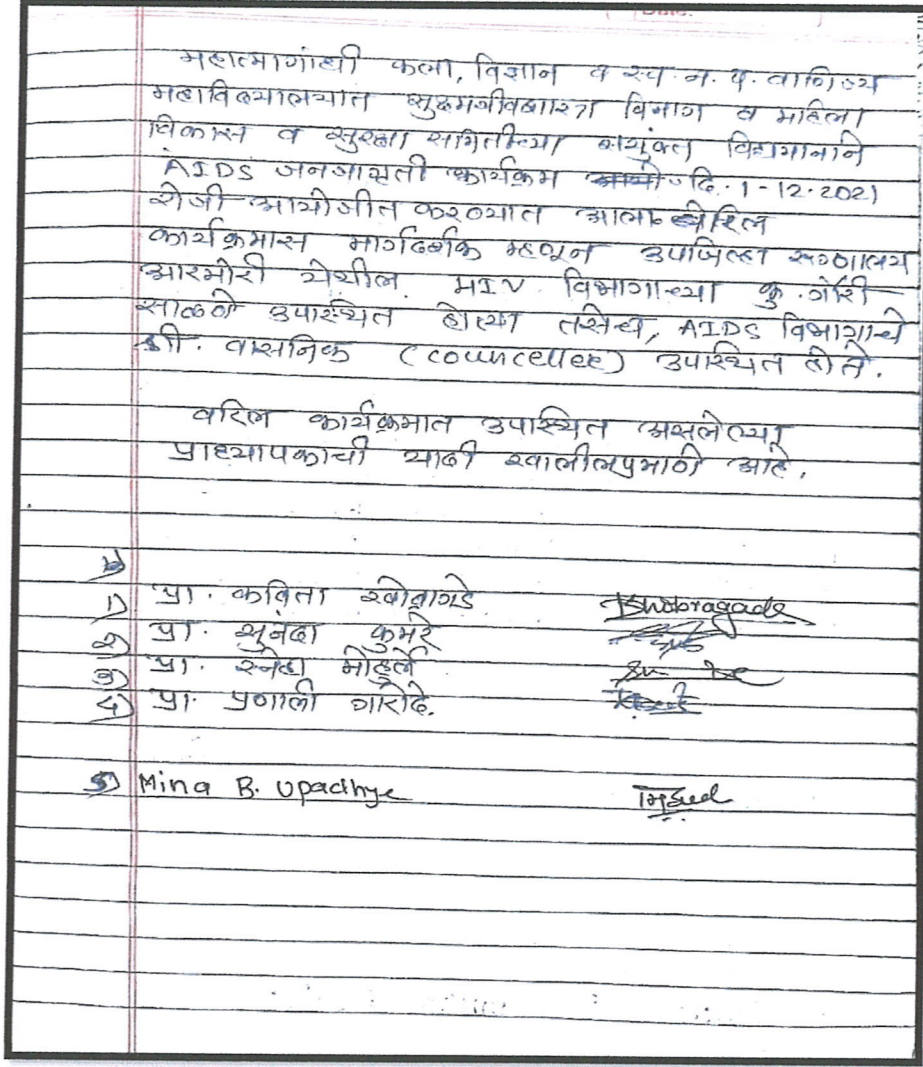 महात्मागांधी कला, विज्ञान व स्व. न. पं. वाणिज्य
महाविद्यालयात सुक्ष्मजीवशास्त्र विभाग व महिला
विकास व सुरक्षा समितीच्या संयुक्त विद्यमानाने
AIDS जनजागृती कार्यक्रम दि. 1-12-2021
रोजी आयोजीत करण्यात आला. वरिल
कार्यक्रमास मार्गदर्शक म्हणून उपजिल्हा रुग्णालय
आरमोरी येथील HIV विभागाच्या कु. गौरी
साळवे उपास्थित होत्या तसेच, AIDS विभागाचे
श्री. वासनिक (councellee) उपास्थित होते.
वरिल कार्यक्रमात उपास्थित असलेल्या
प्राध्यापकाची यादी खालीलप्रमाणे आहे.
1) प्रा. कविता खोब्रागडे Khobragade
२) प्रा. सुनंदा कुमरे
३) प्रा. स्नेहा मोहुर्ले
4) प्रा. प्रणाली गारोदे.
5) Mina B. Upadhye